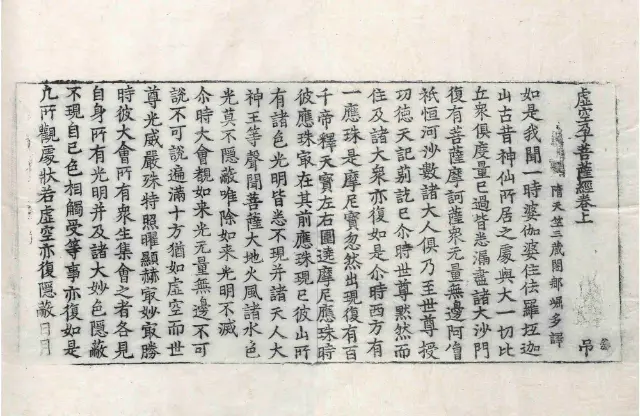 虛空孕菩薩經卷上 吊
隋天竺三藏闍那崛多譯
如是我聞一時婆伽婆住佉羅坻迦
山古昔神仙所居之處與大一切比
丘衆俱度量已過皆悉漏盡諸大沙門
復有菩薩摩訶薩衆无量無邊阿僧
祇恒河沙數諸大人俱乃至世尊授
功徳天記莂訖已尒時世尊黙然而
住及諸大衆亦復如是尒時西方有
一應珠是摩尼寳忽然出現復有百
千帝釋天寳左右圍遶摩尼應珠時
彼應珠㝡在其前應珠現已彼山所
有諸色光明皆悉不現并諸天人大
神王等聲聞菩薩大地火風諸水色
光莫不隱蔽唯除如來光明不滅
尒時大會覩如來光无量無邊不可
説不可説遍滿十方猶如虛空而世
尊光威嚴殊特照曜顯赫㝡妙㝡勝
時彼大會所有衆生集會之者各見
自身所有光明并及諸大妙色隱蔽
不現自已色相觸受等事亦復如是
凡所觀處狀若虛空亦復隱蔽日月